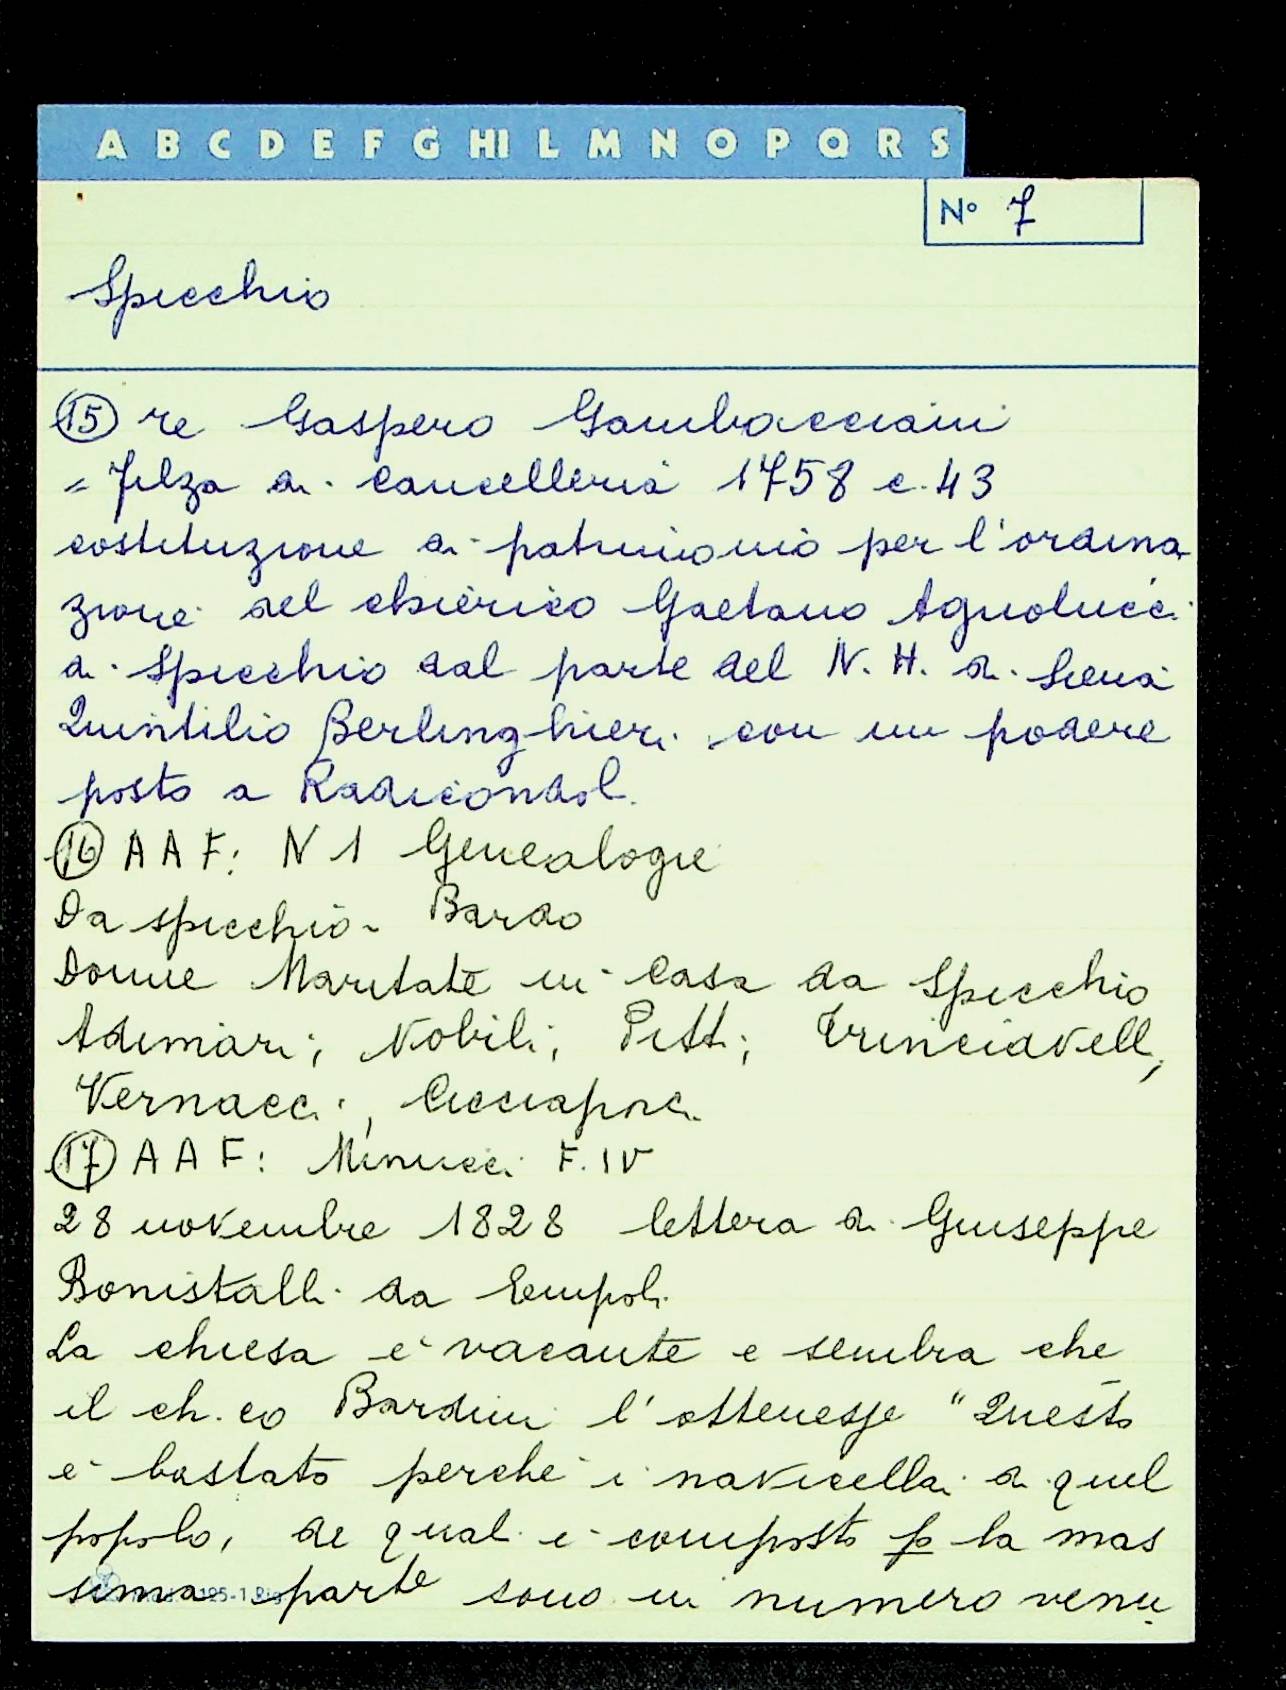 A B C D E F G HI L M N O P Q R S
N° 7
Specchio
15 re Gaspero Gambacciani
= Filza di cancelleria 1758 c. 43
costituzione di patrimonio per l'ordina
zione del chierico Gaetano Agnolucci
di Specchio dal parte del N. H. di Siena
Quintilio Berlinghieri con un podere
posto a Radicondoli
16 A A F: N 1 Genealogie
Da specchio - Bardo
Donne Maritate in casa da Specchio
Adimari; Nobili; Pitti; Trinciavelli,
Vernacci, Cicciaporci
17 A A F: Minucci F. IV
28 novembre 1828 lettera di Giuseppe
Bonistalli da Empoli
La chiesa è vacante e sembra che
il ch.co Bardini l'ottenesse "Questo
è bastato perchè i navicellai di quel
popolo, de quali è composto p la mas
sima parte sono in numero venu